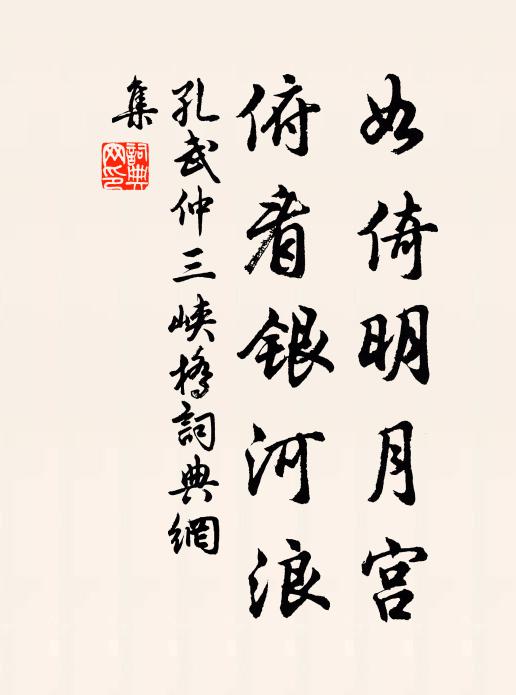 如倚明月宫
俯看银河浪
孔武仲三峡桥詞典網
集
詞典
网印